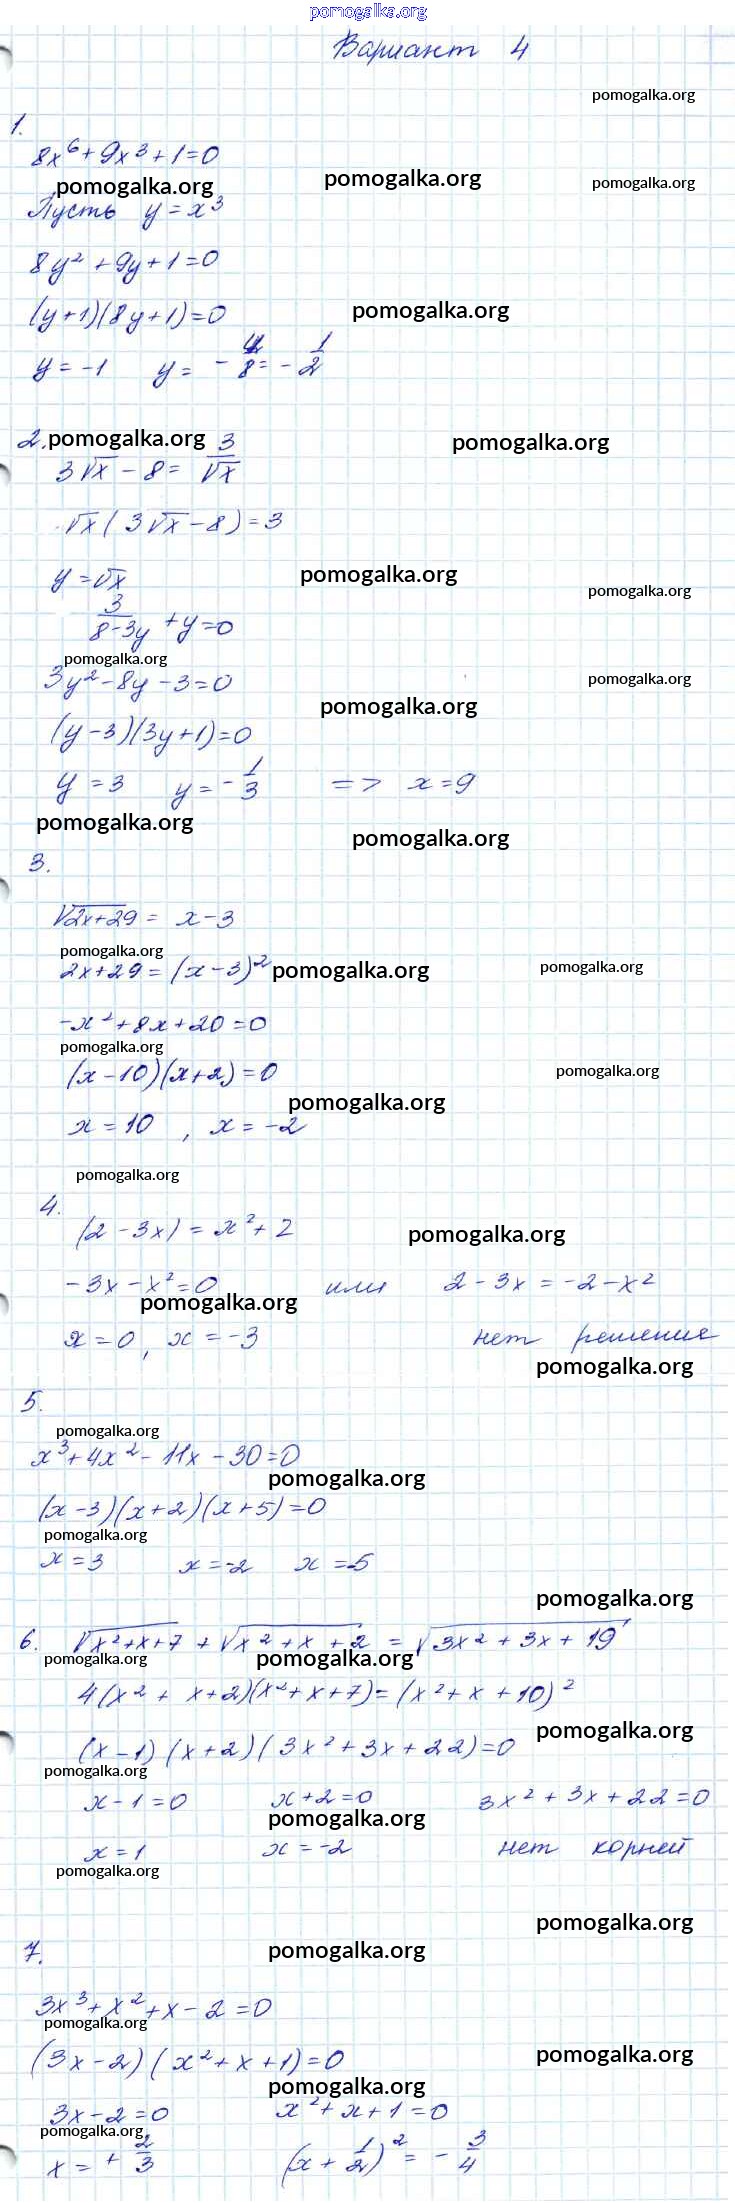 pomogalka.org
Вариант 4
pomogalka.org
1.
8x⁶ + 9x³ + 1 = 0
pomogalka.org pomogalka.org pomogalka.org
Пусть y = x³
8y² + 9y + 1 = 0
(y+1)(8y+1) = 0 pomogalka.org
y = -1 y = - 4/8 = - 1/2
2. pomogalka.org pomogalka.org
3√x - 8 = 3/√x
√x (3√x - 8) = 3
y = √x pomogalka.org pomogalka.org
3/(8-3y) + y = 0
pomogalka.org
3y² - 8y - 3 = 0 pomogalka.org
pomogalka.org
(y-3)(3y+1) = 0
y = 3 y = - 1/3 => x = 9
pomogalka.org pomogalka.org
3.
√(2x+29) = x - 3
pomogalka.org
2x+29 = (x-3)² pomogalka.org pomogalka.org
-x² + 8x + 20 = 0
pomogalka.org
(x-10)(x+2) = 0 pomogalka.org
pomogalka.org
x = 10 , x = -2
pomogalka.org
4.
(2 - 3x) = x² + 2 pomogalka.org
-3x - x² = 0 или 2 - 3x = -2 - x²
pomogalka.org
x = 0 , x = -3 нет решение
pomogalka.org
5.
pomogalka.org
x³ + 4x² - 11x - 30 = 0
pomogalka.org
(x-3)(x+2)(x+5) = 0
pomogalka.org
x = 3 x = -2 x = -5
pomogalka.org
6. √(x²+x+7) + √(x²+x+2) = √(3x²+3x+19)
pomogalka.org pomogalka.org
4(x² + x+2)(x²+x+7) = (x²+x+10)²
pomogalka.org
(x-1)(x+2)(3x²+3x+22) = 0
pomogalka.org
x-1=0 x+2=0 3x²+3x+22=0
pomogalka.org
x = 1 x = -2 нет корней
pomogalka.org
pomogalka.org
7. pomogalka.org
3x³ + x² + x - 2 = 0
pomogalka.org
(3x-2)(x²+x+1) = 0 pomogalka.org
pomogalka.org
3x-2=0 x²+x+1=0
pomogalka.org
x = + 2/3 (x + 1/2)² = - 3/4